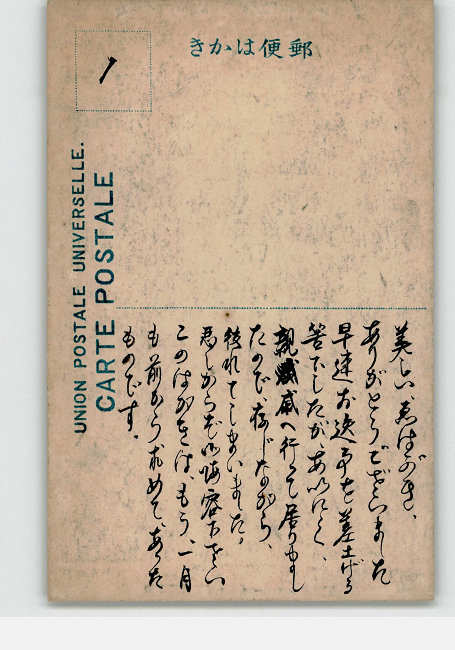 きかは便郵
1
UNION POSTALE UNIVERSELLE.
CARTE POSTALE
美しいゑはがき、
ありがとうございました
早速お返事を差上げる
筈でしたがあいにく、
親戚へ行って居りまし
たので、存じながら、
後れてしまいました。
悪しからず御海容下さい
このはがきは、もう、一月
も前から求めて、あった
ものです。